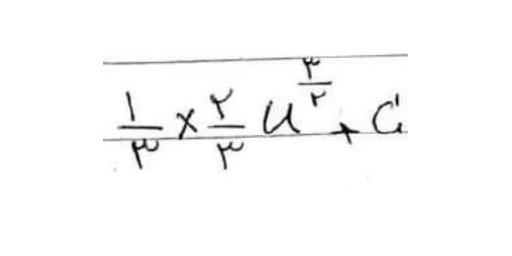 ۱/۳ × ۲/۳ u^{۳/۲} + C